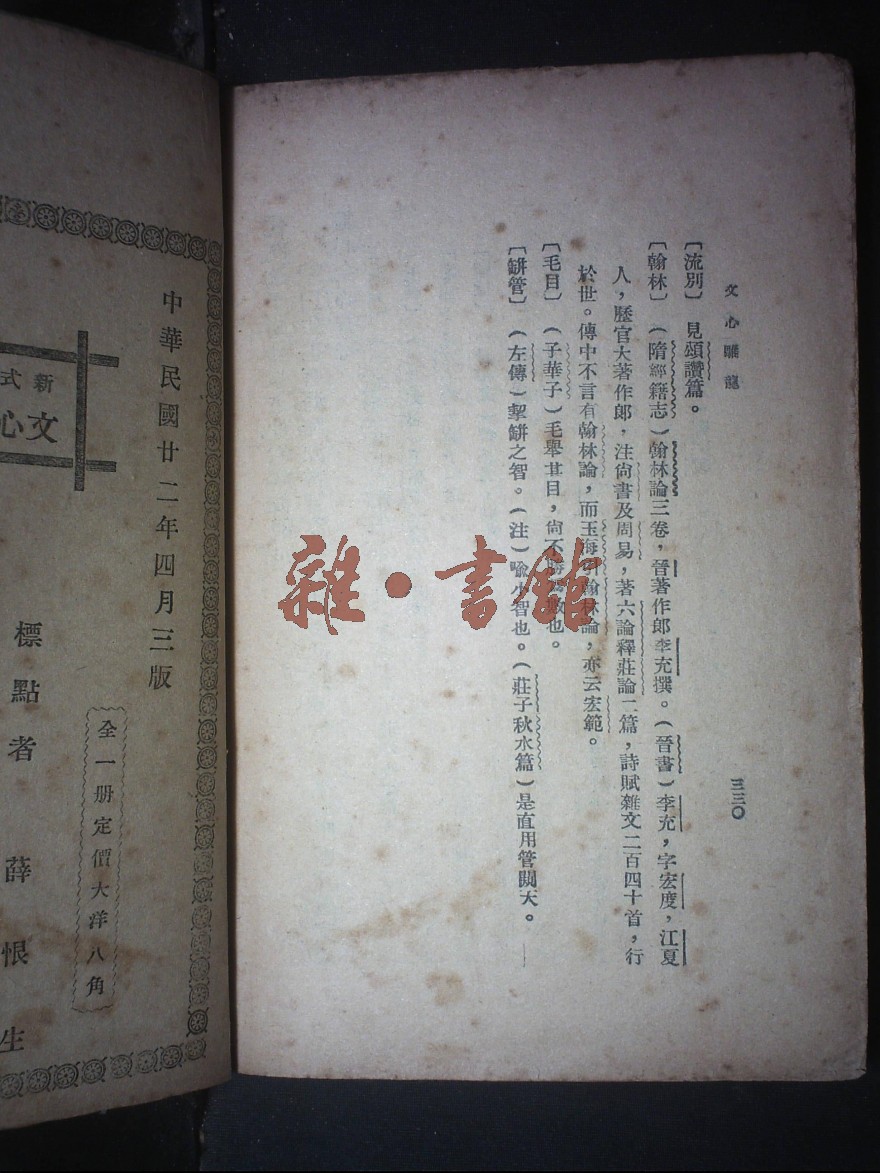 文心雕龍
三三〇
[流別] 見頌讚篇。
[翰林] (隋經籍志)翰林論三卷,晉著作郎李充撰。(晉書)李充,字宏度,江夏
人,歷官大著作郎,注尙書及周易,著六論釋莊論二篇,詩賦雜文二百四十首,行
於世。傳中不言有翰林論,而玉海 翰林論,亦云宏範。
[毛目] (子華子)毛舉其目,尙不勝 也。
[缾管] (左傳)挈缾之智。(注)喩小智也。(莊子秋水篇)是直用管闚天。
雜·書館
中華民國廿二年四月三版
全一册定價大洋八角
新式
文心
標點者 薛恨生